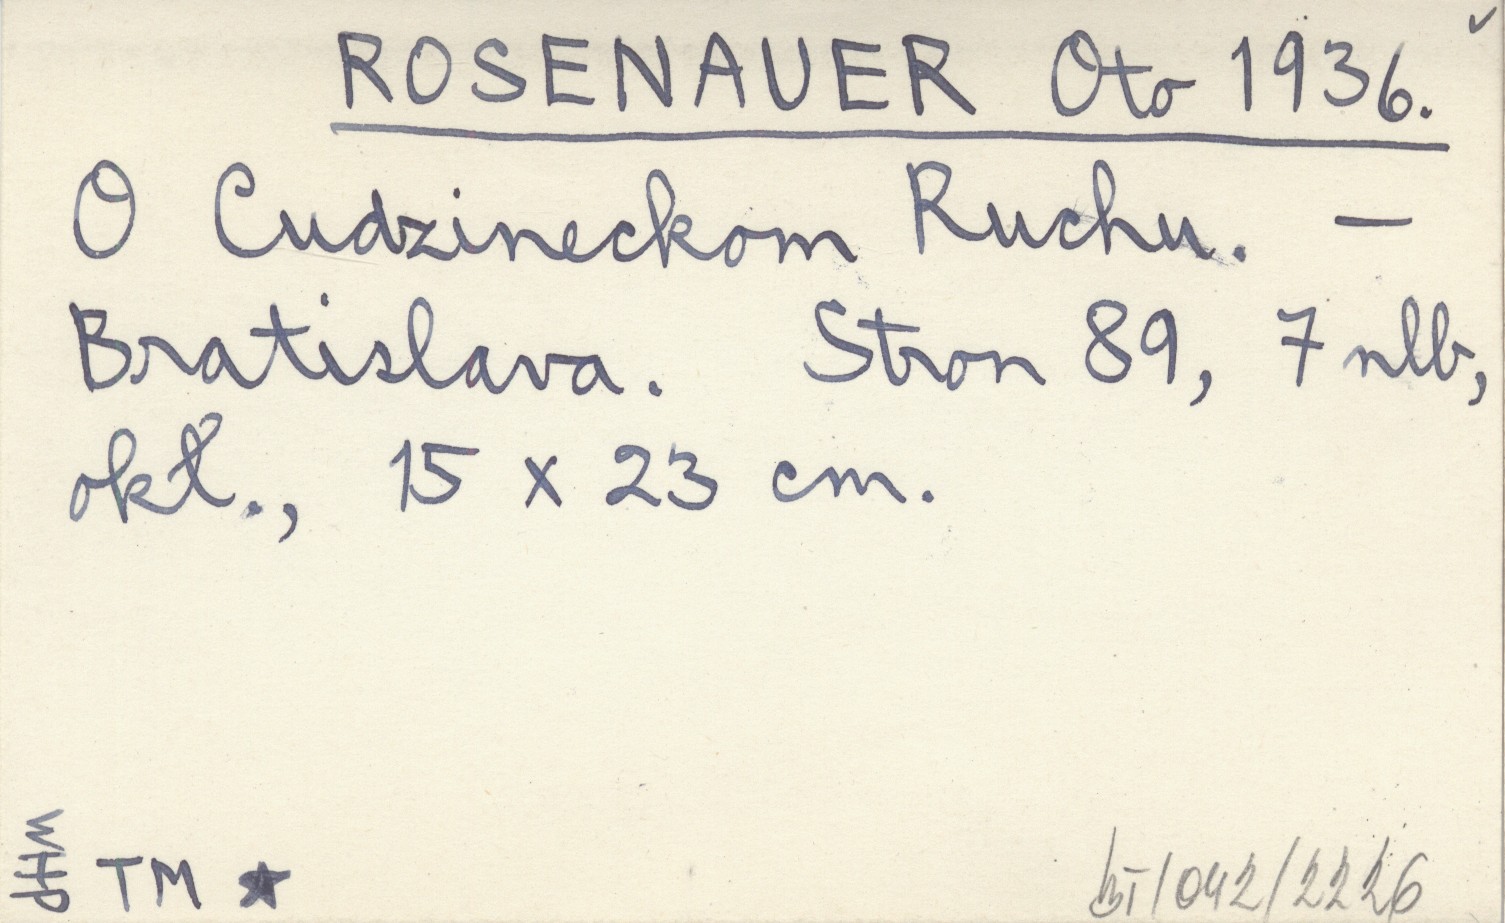 ROSENAUER Oto 1936.
O Cudzineckom Ruchu. —
Bratislava. Stron 89, 7 nlb,
okł., 15 x 23 cm.
WHP
TM ★
/042/2226